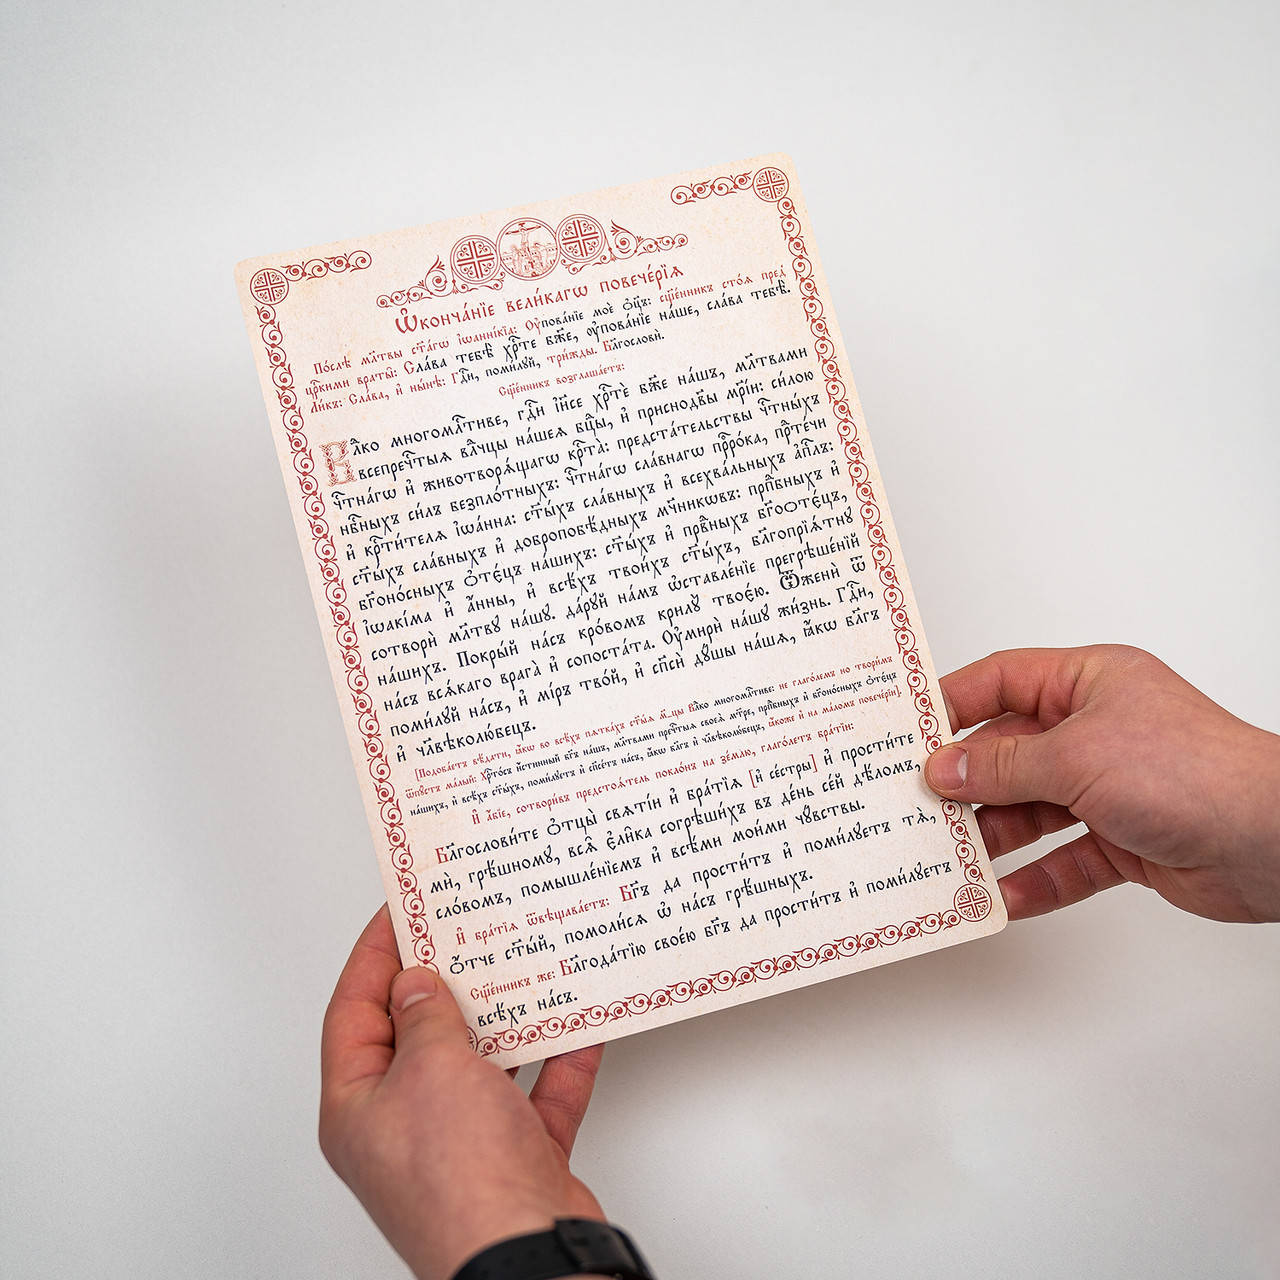 Ѡ҆конча́нїе вели́кагѡ повече́рїѧ
По́слѣ мл҃твы ст҃а́гѡ і҆ѡанни́кїа: Оу҆пова́нїе моѐ ѻ҆ц҃ъ: сщ҃е́нникъ стоѧ̀ пред̾
цр҃кими враты̑: Сла́ва тебѣ̀ хрⷭ҇тѐ бж҃е, оу҆пова́нїе на́ше, сла́ва тебѣ̀.
Ли́къ: Сла́ва, и҆ ны́нѣ: Гдⷭ҇и, поми́лꙋй, три́жды. Бл҃гослови̑.
Сщ҃е́нникъ возглаша́етъ:
Влⷣко многомлⷭ҇тиве, гдⷭ҇и і҆и҃се хрⷭ҇тѐ бж҃е на́шъ, мл҃твами
всепречⷭ҇тыѧ влⷣчцы на́шеѧ бцⷣы, и҆ приснодв҃ы мр҃і́и: си́лою
чⷭ҇тна́гѡ и҆ животворѧ́щагѡ крⷭ҇та̀: предста́тельствы чⷭ҇тны́хъ
нбⷭ҇ныхъ си́лъ безпло́тныхъ: чⷭ҇тна́гѡ сла́внагѡ прⷪ҇ро́ка, прⷣте́чи
и҆ крⷭ҇ти́телѧ і҆ѡа́нна: ст҃ы́хъ сла́вныхъ и҆ всехва́льныхъ а҆пⷭ҇лъ:
ст҃ы́хъ сла́вныхъ и҆ добропобѣ́дныхъ мч҃никѡвъ: прпⷣбныхъ и҆
бг҃оно́сныхъ ѻ҆те́цъ на́шихъ: ст҃ы́хъ и҆ првⷣныхъ бг҃оѻте́цъ,
і҆ѡакі́ма и҆ а҆́нны, и҆ всѣ́хъ твои́хъ ст҃ы́хъ, бл҃гопрїѧ́тнꙋ
сотворѝ мл҃твꙋ на́шꙋ. да́рꙋй на́мъ ѡ҆ставле́нїе прегрѣше́нїй
на́шихъ. Покры́й на́съ кро́вомъ крилꙋ̀ твоє́ю. Ѿженѝ ѿ
на́съ всѧ́каго врага̀ и҆ сопоста́та. Оу҆мирѝ на́шꙋ жи́знь. Гдⷭ҇и,
поми́лꙋй на́съ, и҆ мі́ръ тво́й, и҆ сп҃сѝ дꙋ́шы на́шѧ, ꙗ҆́кѡ бл҃гъ
и҆ чл҃вѣколю́бецъ.
[Подоба́етъ вѣ́дати, ꙗ҆́кѡ во всѣ́хъ пѧтка́хъ ст҃ы́ѧ м҃-цы Влⷣко многомлⷭ҇тиве: не глаго́лемъ но твори́мъ
ѿпꙋ́стъ ма́лый: Хрⷭ҇то́съ и҆́стинный бг҃ъ на́шъ, мл҃твами пречⷭ҇тыѧ своеѧ̀ мт҃ре, прпⷣбныхъ и҆ бг҃оно́сныхъ ѻ҆те́цъ
на́шихъ, и҆ всѣ́хъ ст҃ы́хъ, поми́лꙋетъ и҆ спⷭ҇е́тъ на́съ, ꙗ҆́кѡ бл҃гъ и҆ чл҃вѣколю́бецъ, ꙗ҆́коже и҆ на ма́ломъ повече́рїи].
И҆ а҆́бїе, сотвори́въ предстоѧ́тель покло́нъ на зе́млю, глаго́летъ бра́тїи:
Бл҃гослови́те ѻ҆тцы̀ свѧті́и и҆ бра́тїѧ [и҆ се́стры] и҆ прости́те
мѝ, грѣ́шномꙋ, всѧ̑ є҆ли̑ка согрѣши́хъ въ де́нь се́й дѣ́ломъ,
сло́вомъ, помышле́нїемъ и҆ всѣ́ми мои́ми чꙋ́вствы.
И҆ бра́тїѧ ѿвѣща́ваетъ: Бг҃ъ да прости́тъ и҆ поми́лꙋетъ тѧ̀,
ѻ҆́тче ст҃ы́й, помоли́сѧ ѡ҆ на́съ грѣ́шныхъ.
Сщ҃е́нникъ же: Бл҃года́тїю свое́ю бг҃ъ да прости́тъ и҆ поми́лꙋетъ
всѣ́хъ на́съ.